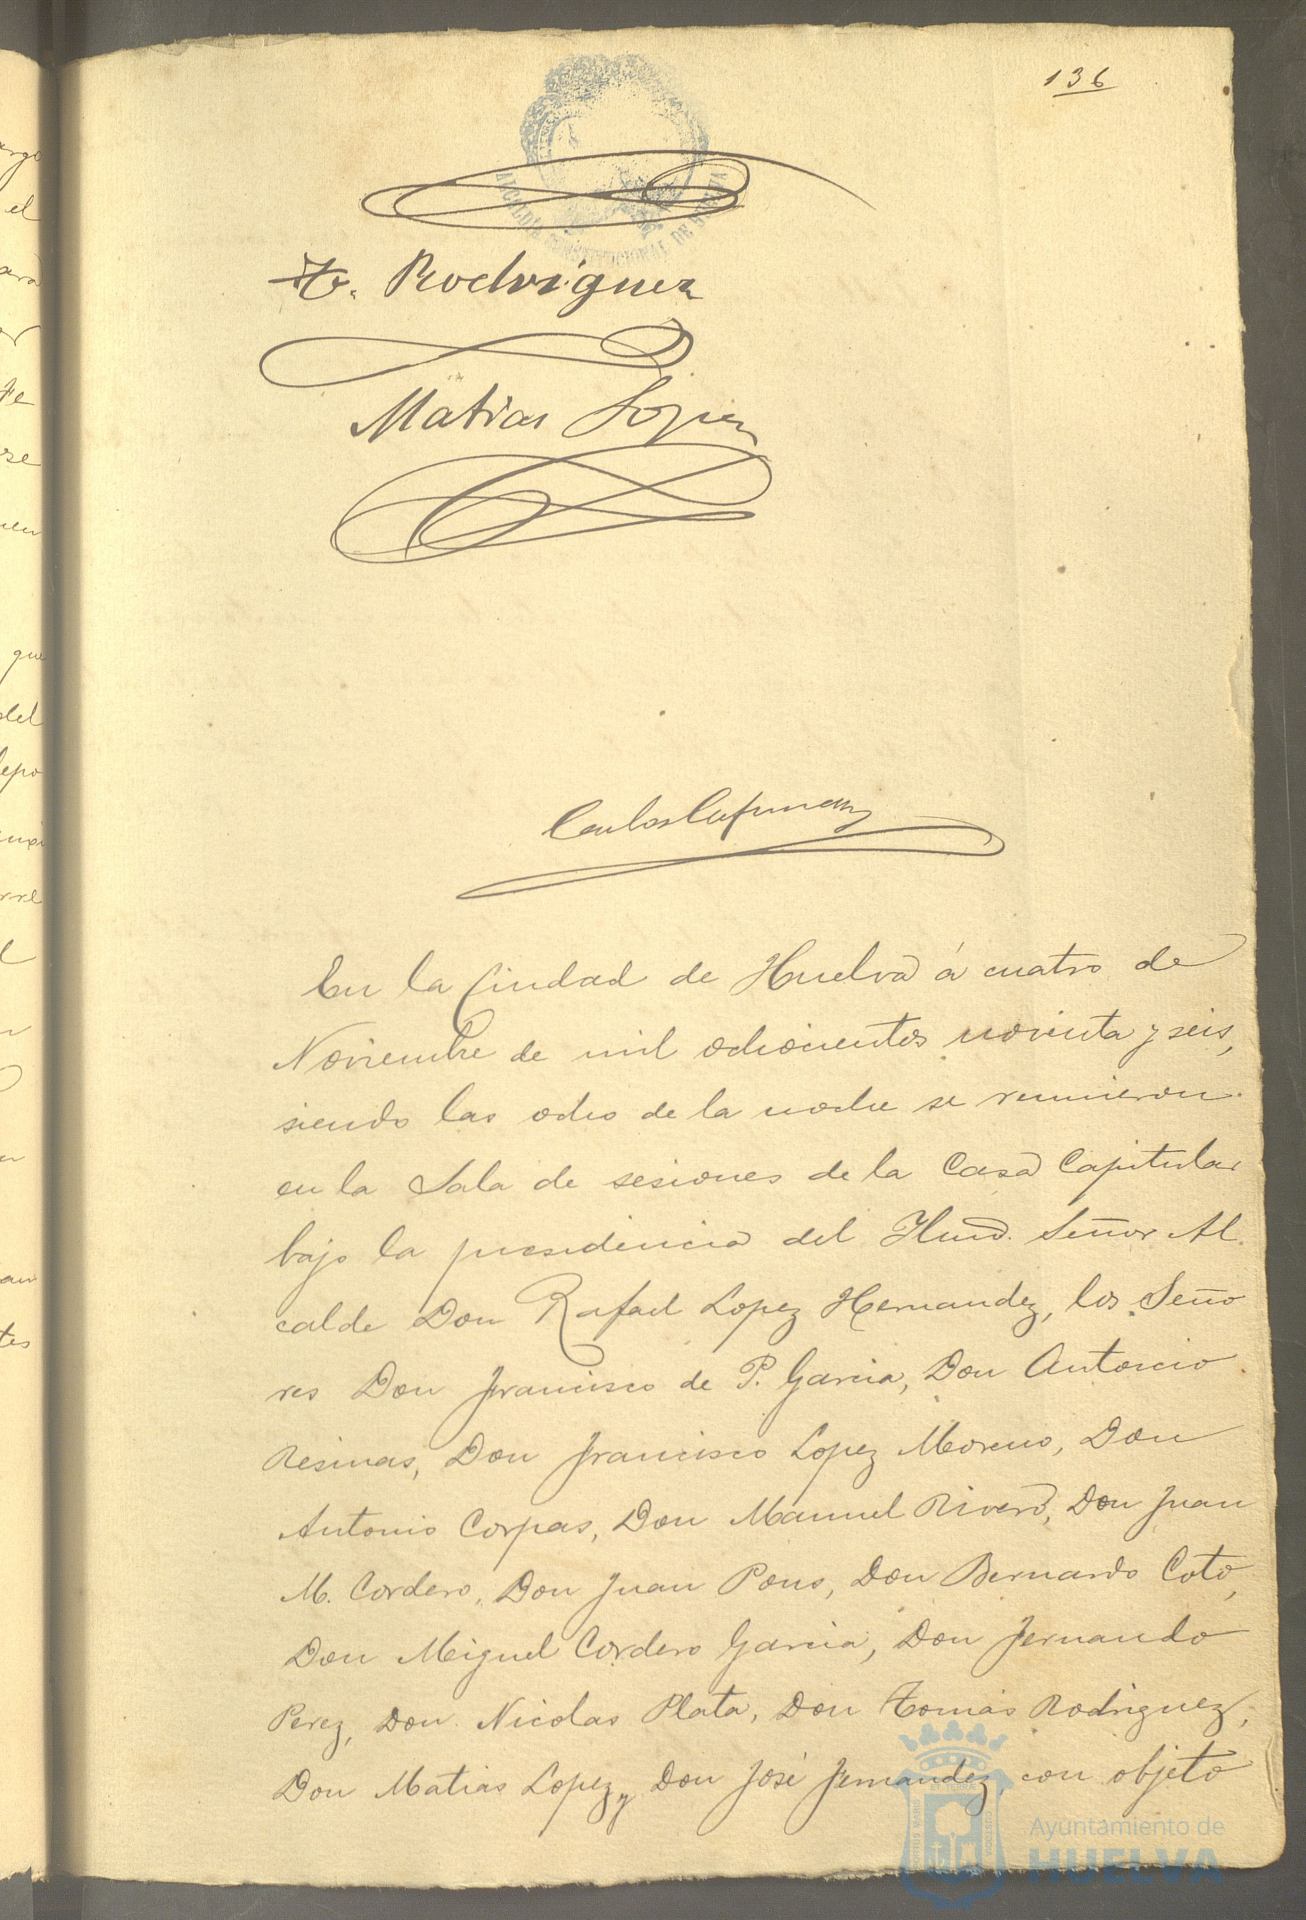 136
ALCALDIA CONSTITUCIONAL DE HUELVA
To. Rodriguez
Matias Lopez
Carlos
En la Ciudad de Huelva á cuatro de
Noviembre de mil ochocientos noventa y seis,
siendo las ocho de la noche se reunieron
en la Sala de sesiones de la Casa Capitular
bajo la presidencia del Iltmo. Señor Al
calde Don Rafael Lopez Hernandez, los Seño
res Don Francisco de P. Garcia, Don Antonio
Resinas, Don Francisco Lopez Moreno, Don
Antonio Corpas, Don Manuel Rivero, Don Juan
M. Cordero, Don Juan Pons, Don Bernardo Coto,
Don Miguel Cordero Garcia, Don Fernando
Perez, Don Nicolas Plata, Don Tomás Rodriguez,
Don Matias Lopez y Don José Fernandez, con objeto
Ayuntamiento de
HUELVA